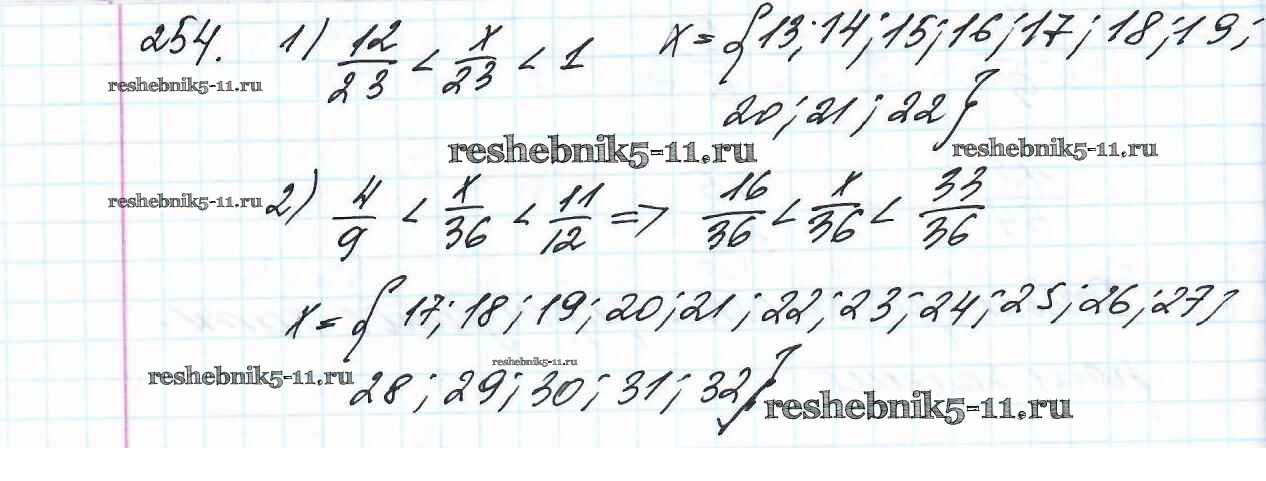 254. 1) 12/23 < x/23 < 1 x = {13; 14; 15; 16; 17; 18; 19;
reshebnik5-11.ru
20; 21; 22}
reshebnik5-11.ru reshebnik5-11.ru
reshebnik5-11.ru
2) 4/9 < x/36 < 11/12 => 16/36 < x/36 < 33/36
x = {17; 18; 19; 20; 21; 22; 23; 24; 25; 26; 27;
reshebnik5-11.ru
reshebnik5-11.ru
28; 29; 30; 31; 32}
reshebnik5-11.ru